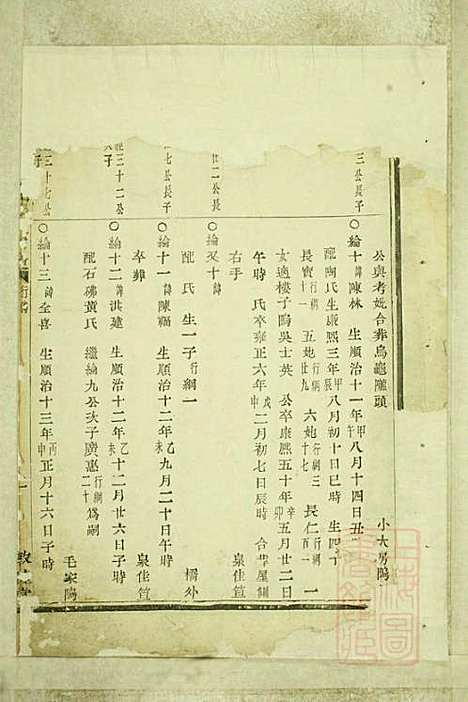 公與考妣合葬烏龜隴頭
小大房隖
三公長子 綸十諱陳林 生順治十一年甲午八月十四日丑
配陶氏生康熙三年甲辰八月初十日巳時 生四子
長賓行綱一 五 行綱廿九 六 行綱三十七 長仁行綱百一 一
女適樓子隖吳士英 公卒康熙五十年辛卯五月廿二日
午時 氏卒雍正六年戊申二月初七日辰時 合葬屋側
右手 泉佳
二公長 綸又十諱
配 氏 生一子行綱一 橋外
七公長子 綸十一諱陳福 生順治十二年乙未九月二十日午時
卒葬 泉佳
三十二公子 綸十二諱洪建 生順治十二年乙未十二月廿六日子時
配石磡黃氏 繼綸九公次子廣惠行綱二十爲嗣
毛家隖
三十七公子 綸十三諱全喜 生順治十三年丙申正月十六日子時
上海圖書館藏